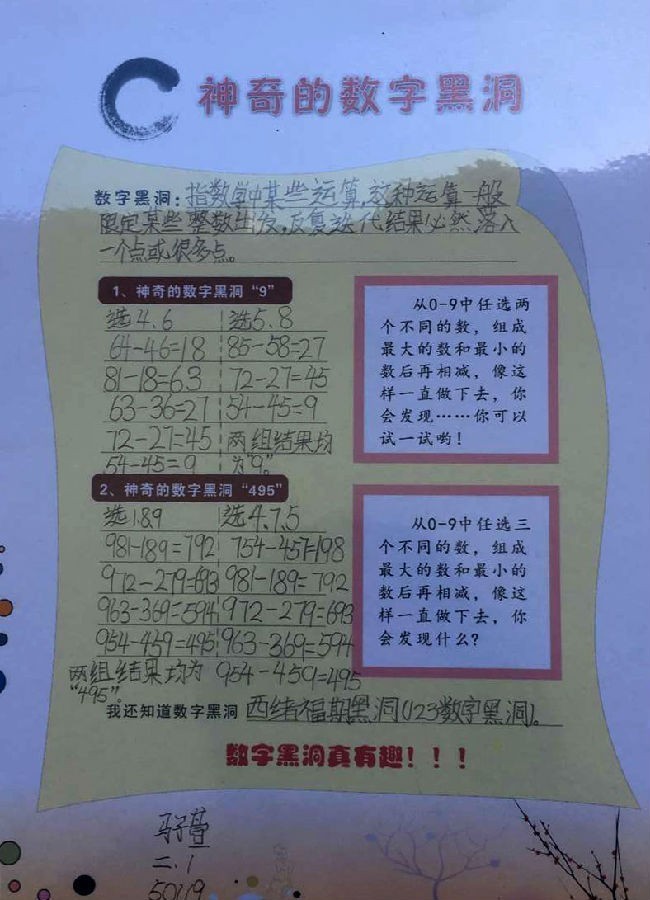 神奇的数字黑洞
数字黑洞：指数学中某些运算,这种运算一般
限定某些整数出发,反复迭代结果必然落入
一个点或很多点。
1、神奇的数字黑洞“9”
选4.6 选5.8
64-46=18 85-58=27
81-18=63 72-27=45
63-36=27 54-45=9
72-27=45 两组结果均
54-45=9 为“9。”
从0-9中任选两
个不同的数，组成
最大的数和最小的
数后再相减，像这
样一直做下去，你
会发现……你可以
试一试哟！
2、神奇的数字黑洞“495”
选1.8.9 选4.7.5
981-189=792 754-457=198
972-279=693 981-189=792
963-369=594 972-279=693
954-459=495 963-369=594
两组结果均为 954-459=495
“495”。
从0-9中任选三
个不同的数，组成
最大的数和最小的
数后再相减，像这
样一直做下去，你
会发现什么？
我还知道数字黑洞 西绪福斯黑洞(123数字黑洞)。
数字黑洞真有趣！！！
二.1